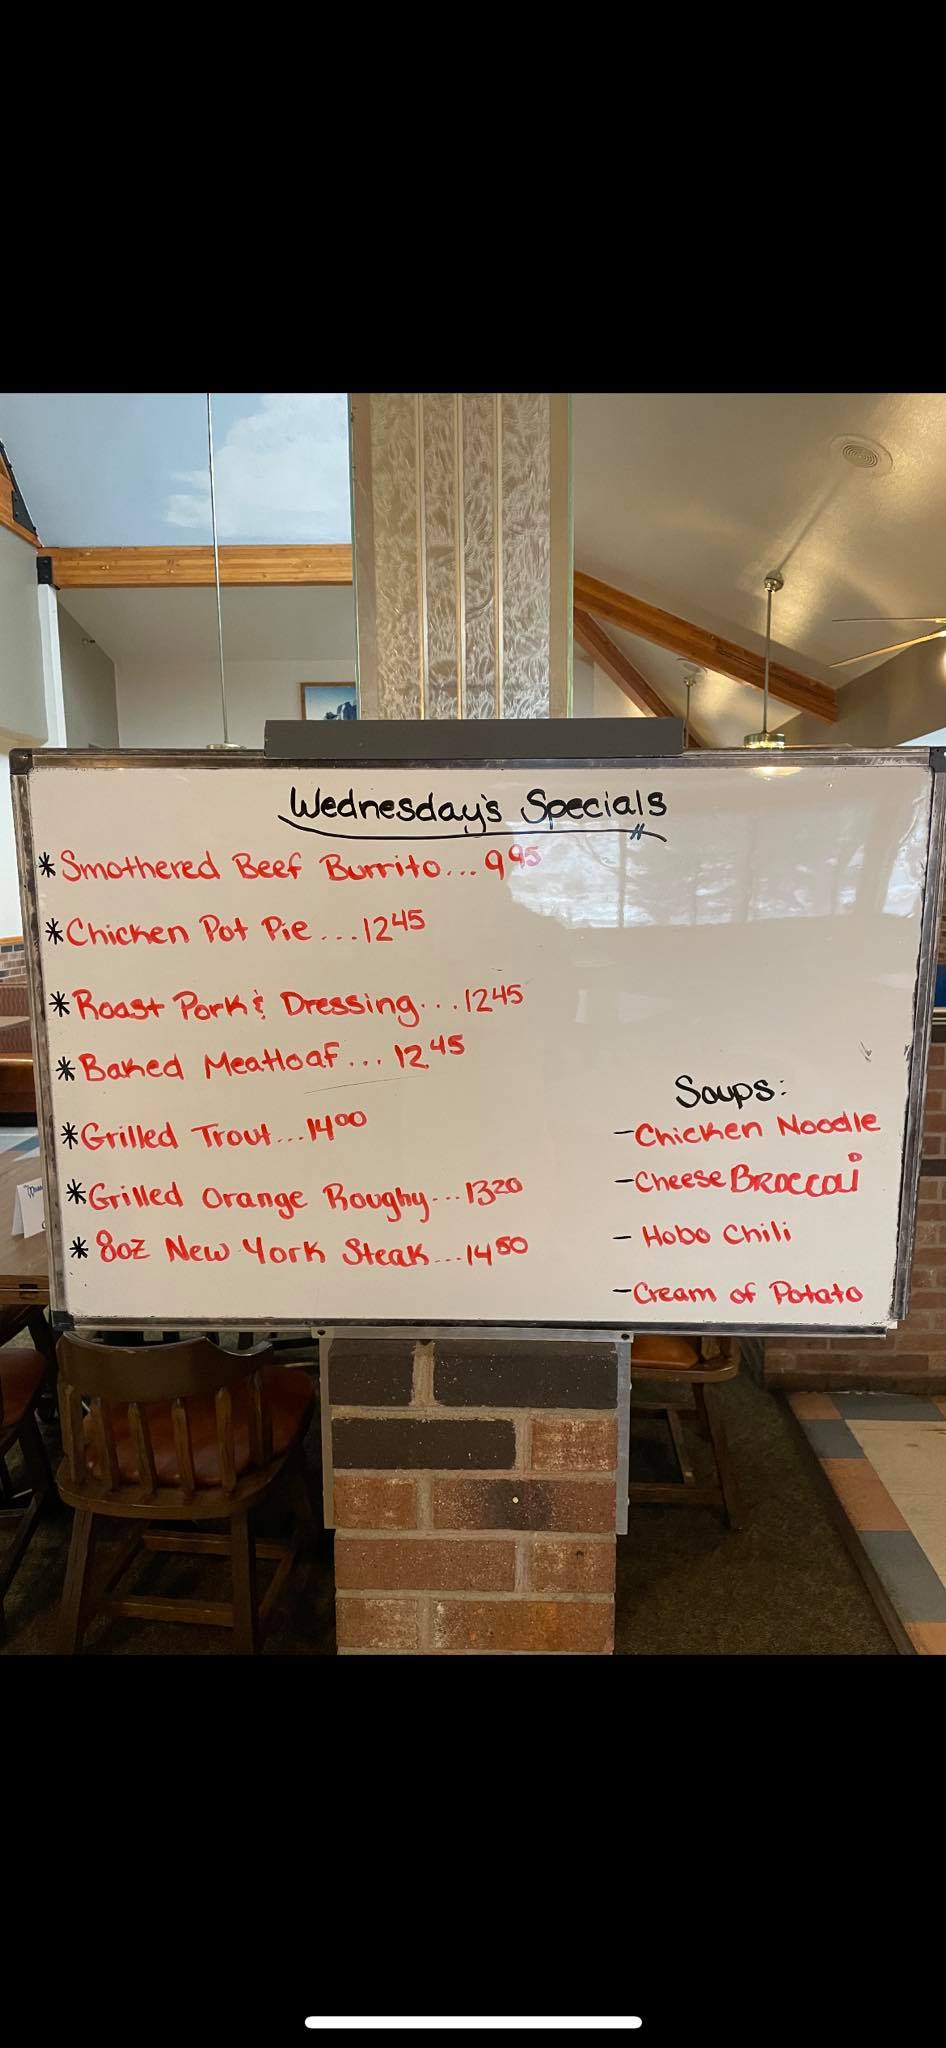 Wednesday's Specials
*Smothered Beef Burrito...9 95
*Chicken Pot Pie...12 45
*Roast Pork & Dressing...12 45
*Baked Meatloaf...12 45
*Grilled Trout...14 00
*Grilled Orange Roughy...13 20
*8oz New York Steak...14 50
Soups:
-Chicken Noodle
-Cheese BRoccoli
- Hobo Chili
-Cream of Potato